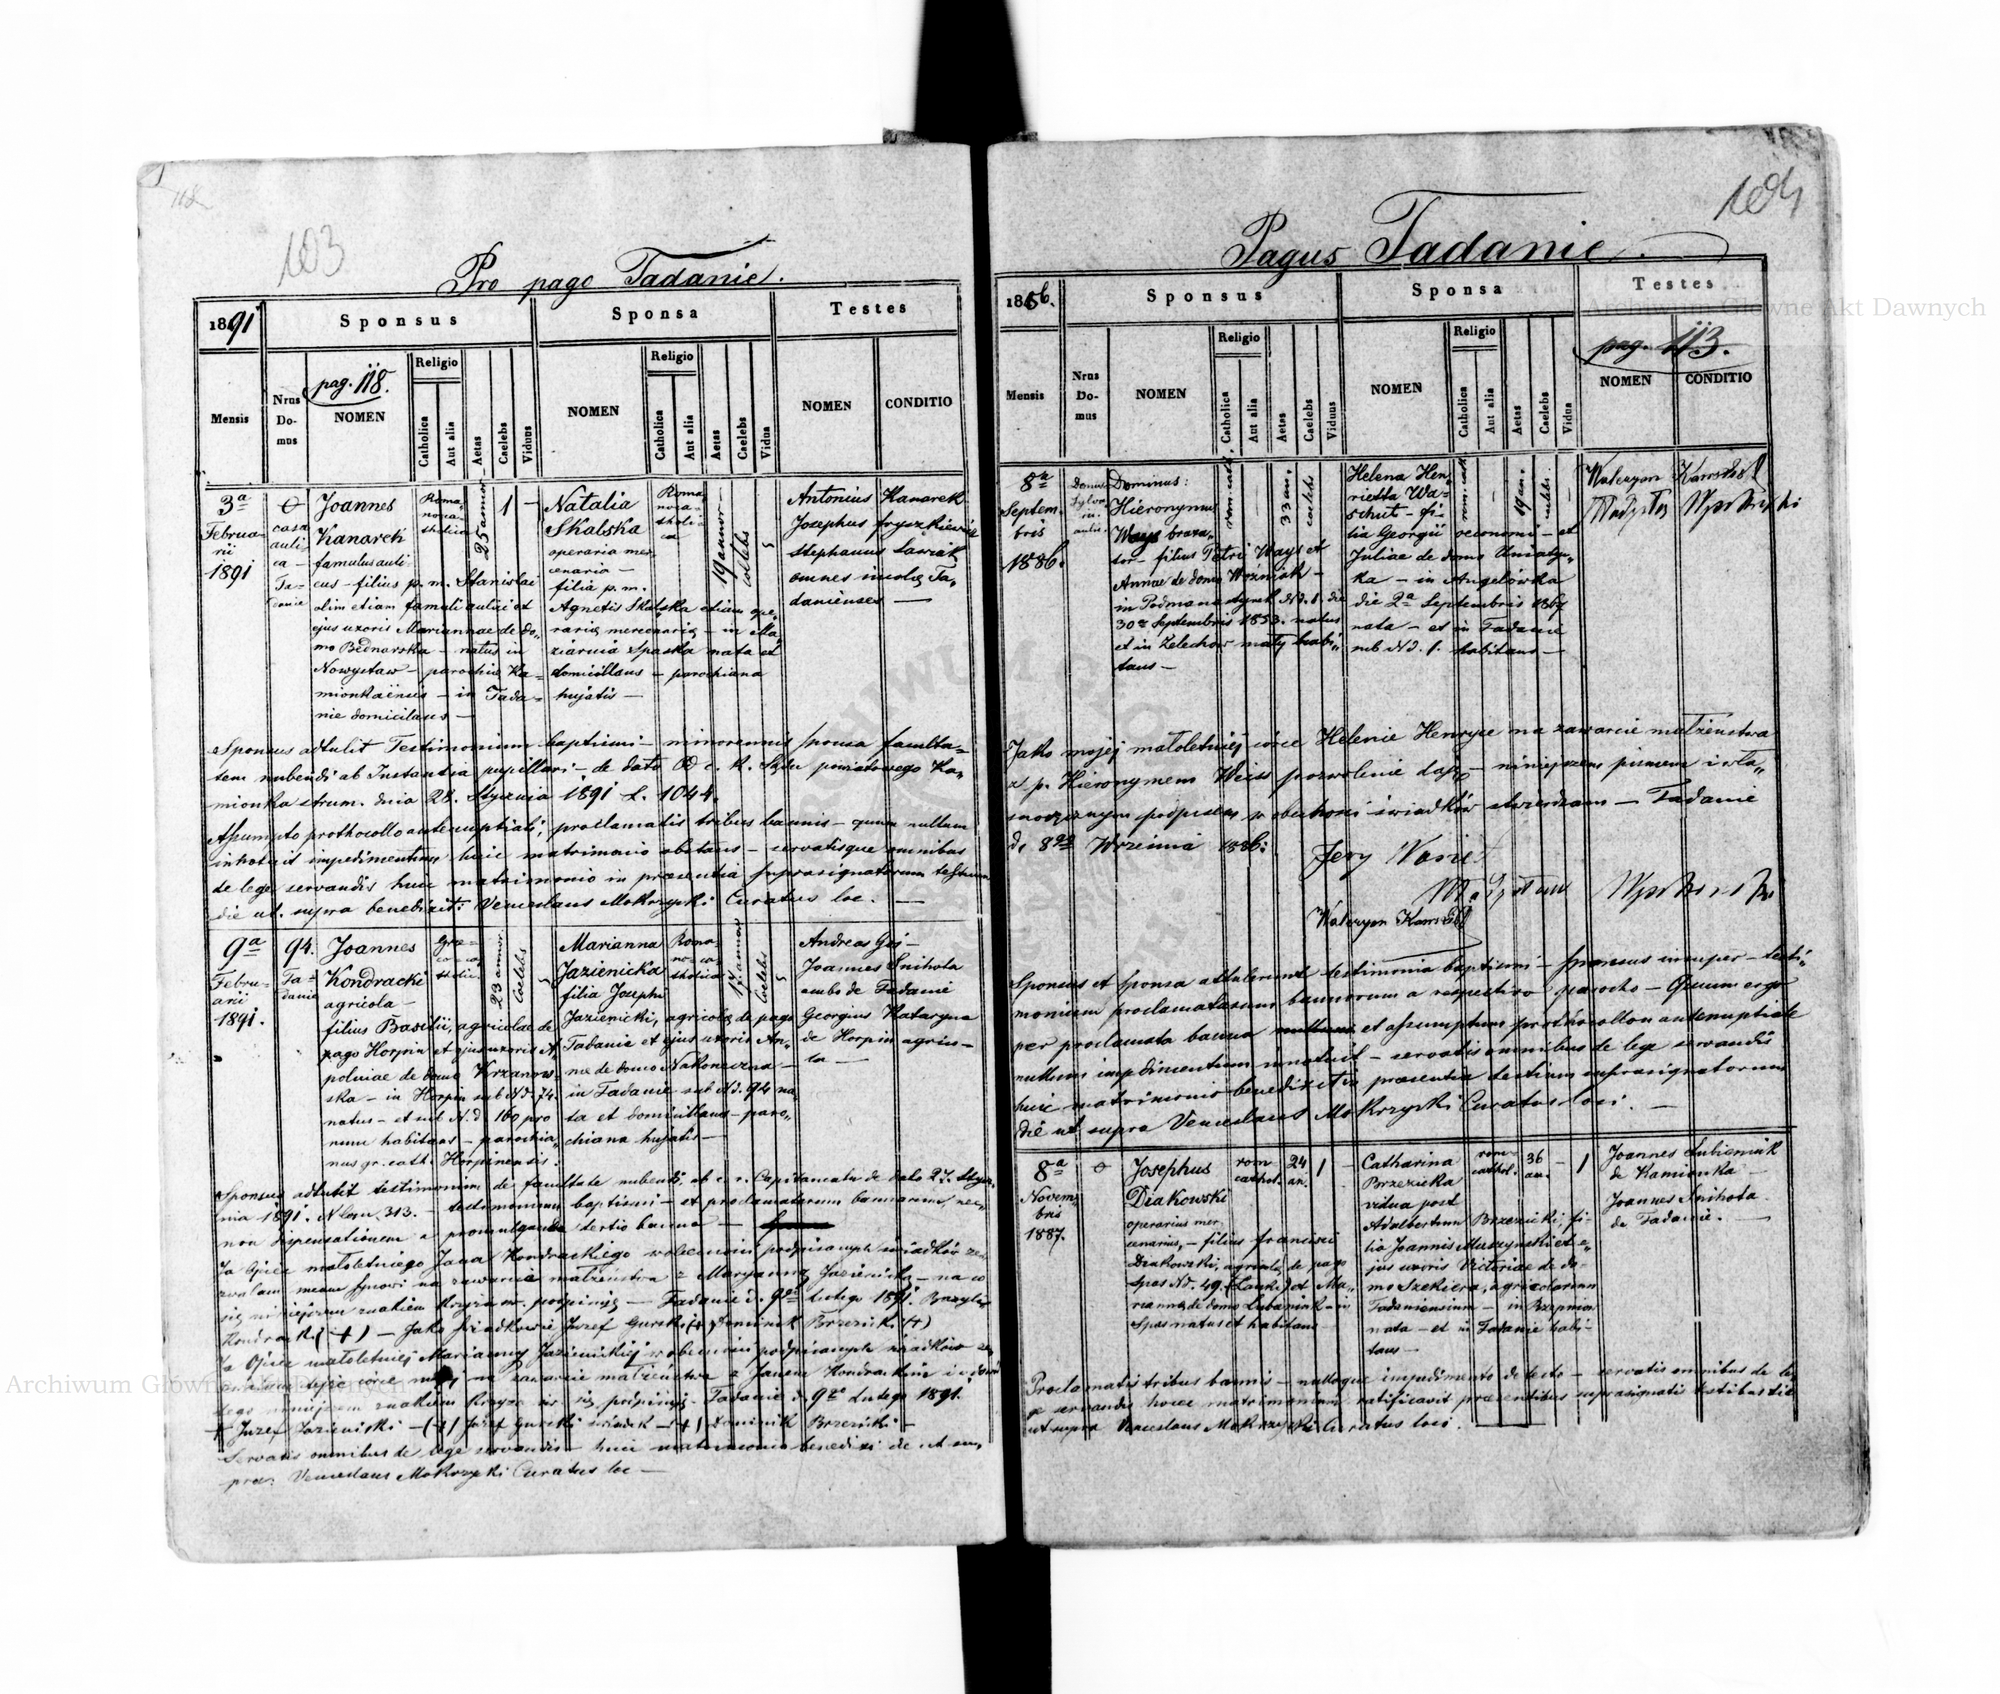 103
Pro pago Tadanie.
1891
Sponsus
Sponsa
Testes
Mensis
Nrus Domus
pag. 118.
NOMEN
Religio
Catholica
Aut alia
Aetas
Caelebs
Viduus
NOMEN
Religio
Catholica
Aut alia
Aetas
Caelebs
Vidua
NOMEN
CONDITIO
3a
Februa-
rii
1891
casa
auli-
ca
Ta-
danie
Joannes
Kanarek
famulus auli-
cus - filius p. m. Stanislai
olim etiam famuli aulici et
ejus uxoris Mariannae de do-
mo Bednarska - natus in
- parochiae Ka-
- in Tada-
nie domicilans -
25 annor
1
Natalia
Skalska
operaria mer-
cenaria -
filia p. m.
Agnetis Skalska etiam ope-
rariae mercenariae - in Ma-
ziarnia Spaska nata et
domicilians - parochiana
hujatis -
19 annor
coelebs
Antonius Kanarek
Josephus
Stephanus
omnes incolae Ta-
danienses
Sponsus adtulit Testimonium baptismi - minorennis sponsa faculta-
tem nubendi ab Instantia pupillari - de dato C. k. Sądu powiatowego Ka-
mionka strum. dnia 28. Stycznia 1891 L. 1044.
Assumpto prothocollo antenuptiali, proclamatis tribus bannis - quum nullum
innotuit impedimentum huic matrimonio obstans - servatisque omnibus
de lege servandis huic matrimonio in praesentia suprasignatorum testium
die ut supra benedixit: Venceslaus Mokrzycki Curatus loc.
9a
Febru-
arii
1891.
94.
Ta-
danie
Joannes
Kondracki
agricola -
filius Basilii, agricolae de
pago Horpin et ejus uxoris A-
poloniae de domo Krzanow-
ska - in Horpin sub Nd. 74.
natus - et sub N.d 160 pro
nunc habitans - parochia-
nus gr. cath. Horpinensis.
23 annor.
Coelebs
Marianna
Jazienicka
filia Josephi
Jazienicki, agricolae de pago
Tadanie et ejus uxoris An-
nae de domo Nakoneczna -
in Tadanie sub Nd. 94 na-
ta et domicilians - paro-
chiana hujatis -
17 annor
Coelebs
Andreas
Joannes Snihota
ambo de Tadanie
Georgius Kataryna
de Horpin agrico-
la -
Sponsus adtulit testimonium de facultate nubendi, ab c. r. Capitaneatu de dato 27. Stycz-
nia 1891. N 313. - testimonium baptismi - et proclamatorum bannorum, nec-
non dispensationem a promulgando tertio banno -
Ja Ojciec małoletniego Jana Kondrackiego w obecności podpisanych świadków ze-
zwalam memu synowi na zawarcie małżeństwa z Maryanną Jazienicką - na co
się niniejszem znakiem krzyża św. podpisuję - Tadanie d. 9go Lutego 1891. Bazyli
Kondracki (+) - Jako świadkowie Józef Gurski (+) Dominik Brzezicki (+)
Ja Ojciec małoletniej Marianny Jazienickiej w obecności podpisanych świadków ze-
zwalam tejże córce mojej na zawarcie małżeństwa z Janem Kondrackim i
tego niniejszem znakiem krzyża św. się podpisuję. Tadanie d. 9go Lutego 1891.
+ Józef Jazienicki - (+) Józef Gurski świadek - (+) Dominik Brzezicki -
Servatis omnibus de lege servandis - huic matrimonio benedixi die ut su-
pra: Venceslaus Mokrzycki Curatus loc -
104
Pagus Tadanie.
1886.
Sponsus
Sponsa
Testes
Mensis
Nrus Domus
NOMEN
Religio
Catholica
Aut alia
Aetas
Caelebs
Viduus
NOMEN
Religio
Catholica
Aut alia
Aetas
Caelebs
Vidua
pag. 113.
NOMEN
CONDITIO
8a
Septem-
bris
1886.
Dominus:
Hieronymus
Ways braxa-
tor - filius Petri Ways et
Annae de domo Woźniak -
in Podmanastyrek Nd. 1. die
30a Septembris 1853. natus
et in Żelechów mały habi-
tans -
rom. cath.
33 an.
caelebs
Helena Hen-
rietta Wa-
schut - fi-
lia Georgii oeconomi - et
Juliae de domo
ka - in Angelówka
die 2a Septembris 1867
nata - et in Tadanie
sub Nd. 1. habitans -
rom. cath
19 an.
caelebs.
Waleryan
Jako mojej małoletniej córce Helenie Henryce na zawarcie małżeństwa
z p. Hieronymem Weiss pozwolenie daję - niniejszem pismem i wła-
snoręcznym podpisem w obecności świadków stwierdzam - Tadanie
d. 8go Września 1886:
Jerzy
Waleryan
Sponsus et sponsa attulerunt testimonia baptismi - sponsus insuper - testi-
monium proclamatarum bannorum a respectivo parocho - Quum ergo
per proclamata banna et assumptum prothocollon antenuptiale
nullum impedimentum innotuit - servatis omnibus de lege servandis
huic matrimonio benedixit in praesentia testium suprasignatorum
die ut supra Venceslaus Mokrzycki Curatus loci. -
8a
Novem-
bris
1887.
Josephus
Diakowski
operarius mer-
cenarius, - filius Francisci
Diakowski, agricolae de pago
Spas Nd. 49. (Łanki) et Ma-
riannae de domo Lubaniak - in
Spas natus et habitans
rom
cathol.
24
an.
1
Catharina
Brzezicka
vidua post
Adalbertum Brzezicki, fi-
lia Joannis Muszynski et e-
jus uxoris Victoriae de do-
mo Szekiera, agricolarum
Tadaniensium - in
nata - et in Tadanie habi-
tans -
rom.
cathol.
36
an.
1
Joannes
de Kamionka
Joannes Snihota
de Tadanie. -
Proclamatis tribus bannis - nulloque impedimento detecto - servatis omnibus de le-
ge servandis hocce matrimonium ratificavit praesentibus suprasignatis testibus die
ut supra Venceslaus Mokrzycki Curatus loci.
Archiwum Główne Akt Dawnych
Archiwum Główne Akt Dawnych